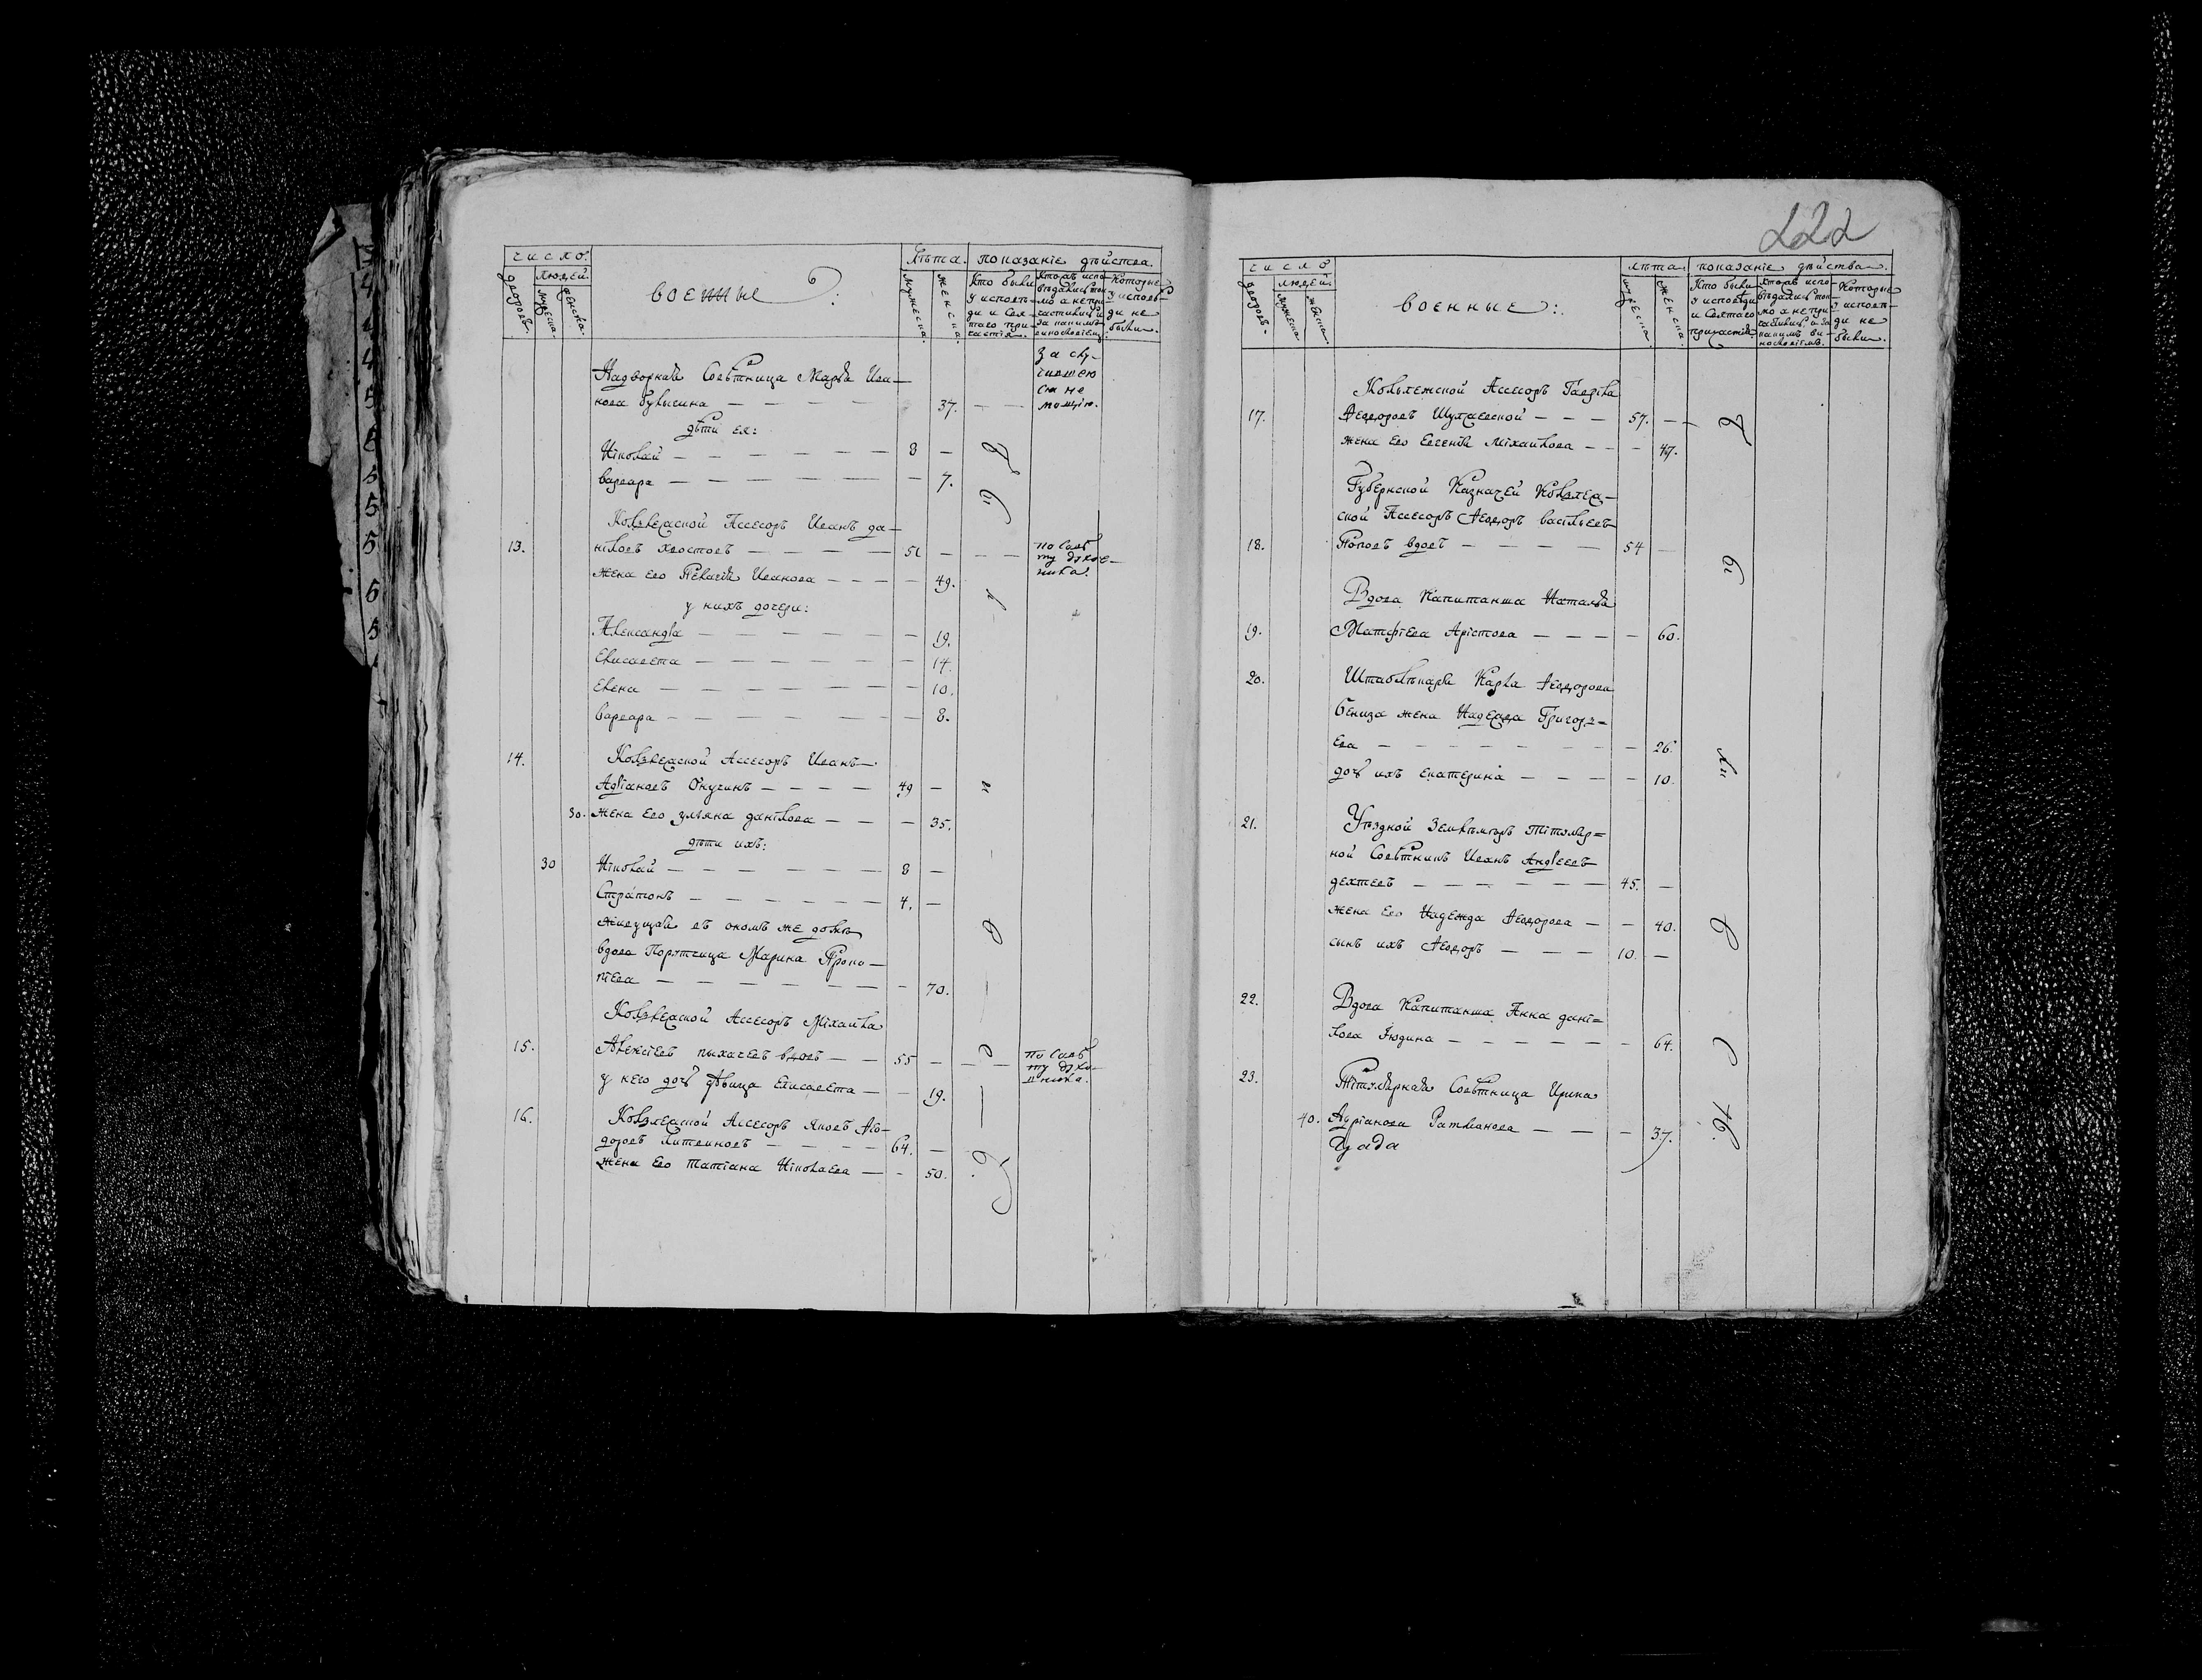 число.
людей.
дворовъ.
мужеска.
женска.
военные
лѣта.
мужеска.
женска.
показаніе дѣйства.
Кто были
у исповѣ-
ди и Свя-
таго при-
частія.
Которые
у исповѣ-
ди не
были.
за слу-
чившею
ся не
мощію.
Надворная Совѣтница Марья Ива-
нова 37.
дѣти ея:
Николай — 8 —
варвара — — 7.
Коллежской Ассесоръ Иванъ да-
13. ниловъ хвостовъ — 51 —
по совѣ
ту духов-
ника.
жена его Пелагія Иванова — — 49.
у нихъ дочери:
Александра — — 19.
Елисавета — — 14.
Елена — — 10.
варвара — — 8.
14. Коллежской Ассесоръ Иванъ
Адріановъ Онучинъ — 49 —
30. жена его ульяна данілова — — 35.
дѣти ихъ:
30 Николай — 8 —
Стратонъ — 4. —
живущая въ ономъ же домѣ
вдова Марина Проко-
піева — — 70.
Коллежской Ассесоръ Михаила
15. Алексѣевъ пыхачевъ вдовъ — 55 —
по совѣ
ту духо-
вника.
у него дочь дѣвица Елисавета — — 19.
16. Коллежской Ассесоръ Яковъ Ѳео-
доровъ Литвиновъ — 64. —
жена его Татіана Николаева — — 50.
222
число
людей.
дворовъ.
мужеска.
женска.
военные:
лѣта.
мужеска.
женска.
показаніе дѣйства.
Кто были
у исповѣди
и Святаго
причастія.
Которые
у исповѣ-
ди не
были.
Коллежской Ассесоръ Гаврила
17. Ѳеодоровъ — 57. —
жена его Евгенія Михаилова — — 47.
Губернской Казначей Коллеж-
ской Ассесоръ Ѳеодоръ васильевъ
18. Поповъ вдовъ — 54 —
Вдова Капитанша Наталья
19. Матфіева Арістова — — 60.
20. Штаблѣкаря Карла Ѳеодорова
бениза жена Надежда Григорь=
ева — — 26.
дочь ихъ екатерина — — 10.
21. Уѣздной Землѣмѣръ Тітуляр=
ной Совѣтникъ Иванъ Андреевъ
дехтевъ — 45. —
жена его Надежда Ѳеодорова — — 40.
сынъ ихъ Ѳеодоръ — 10. —
22. Вдова Капитанша Анна дані=
лова Юдина — — 64.
23. Тітулярная Совѣтница Ирина
40. Адріанова Ратманова — — 37.
Чуада